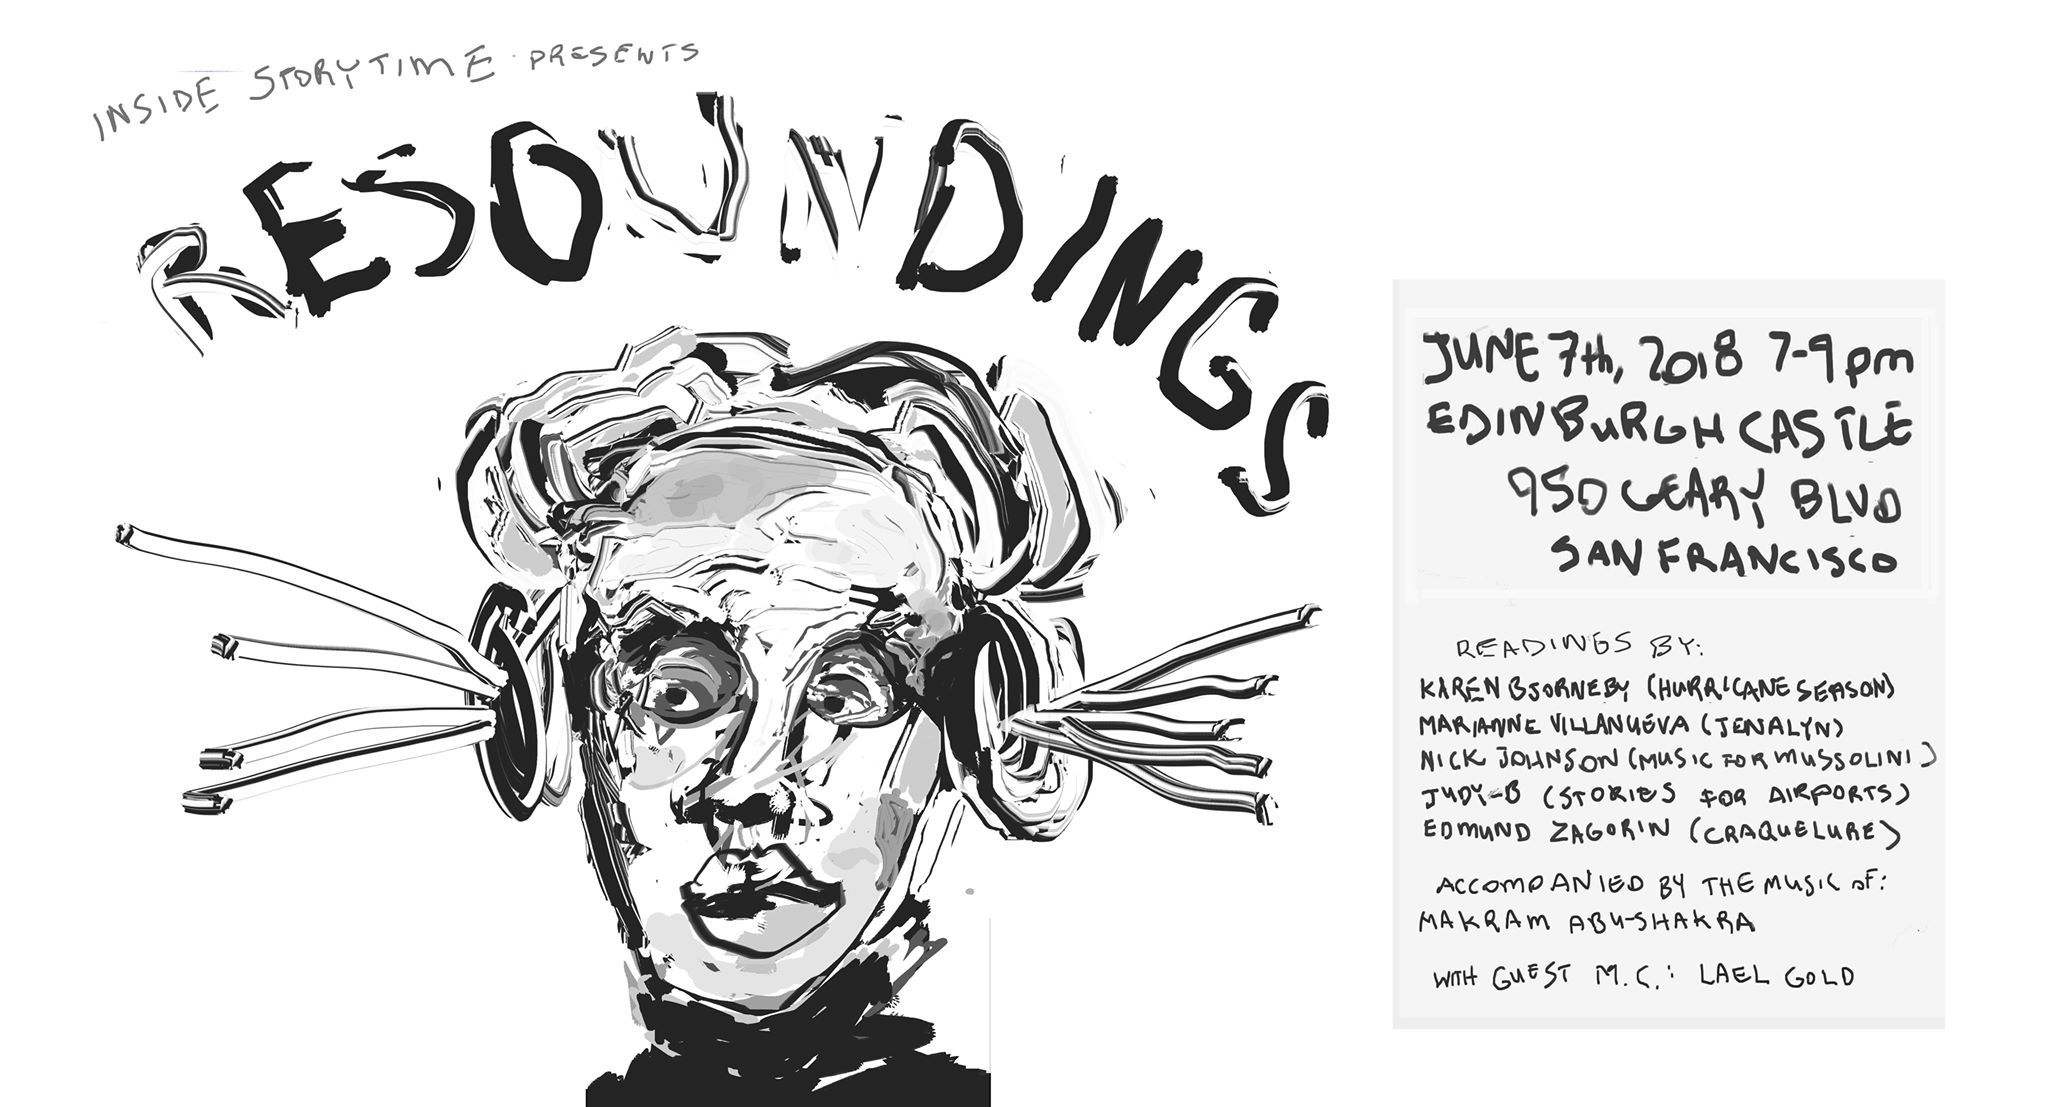 INSIDE STORYTIME PRESENTS
RESOUNDINGS
JUNE 7th, 2018 7-9pm
EDINBURGH CASTLE
950 GEARY BLVD
SAN FRANCISCO
READINGS BY:
KAREN BJORNEBY (HURRICANE SEASON)
MARIANNE VILLANUEVA (JENALYN)
NICK JOHNSON (MUSIC FOR MUSSOLINI)
JUDY-B (STORIES FOR AIRPORTS)
EDMUND ZAGORIN (CRAQUELURE)
ACCOMPANIED BY THE MUSIC OF:
MAKRAM ABU-SHAKRA
WITH GUEST M.C.: LAEL GOLD